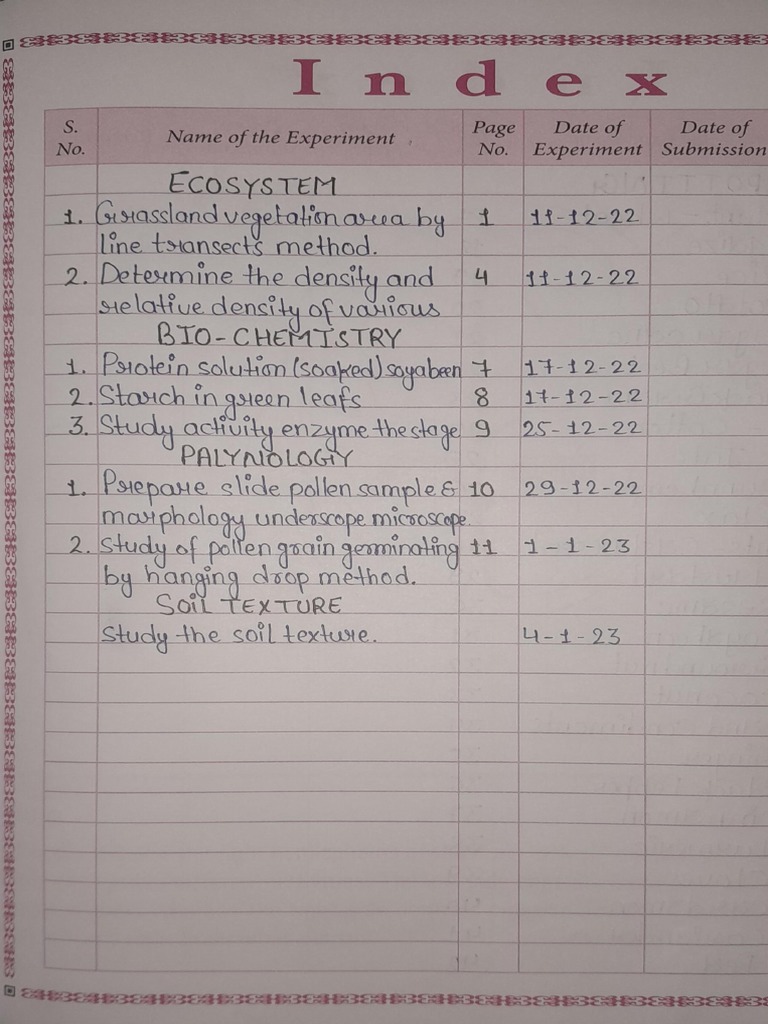 Index
S. No. Name of the Experiment Page No. Date of Experiment Date of Submission
ECOSYSTEM
1. Grassland vegetation area by 1 11-12-22
line transects method.
2. Determine the density and 4 11-12-22
relative density of various
BIO-CHEMISTRY
1. Protein solution (soaked) soyabeen 7 17-12-22
2. Starch in green leafs 8 17-12-22
3. Study activity enzyme the stage 9 25-12-22
PALYNOLOGY
1. Prepare slide pollen sample & 10 29-12-22
morphology underscope microscope.
2. Study of pollen grain germinating 11 1-1-23
by hanging drop method.
SOIL TEXTURE
Study the soil texture. 4-1-23